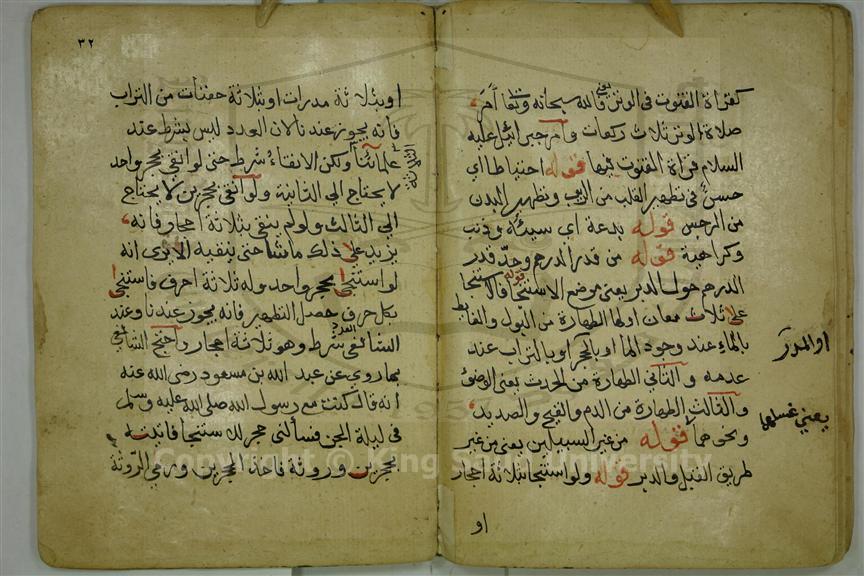 كقراة القنوت في الوتر قالله سبحانه وتعا أمر
صلاة الوتر ثلاث ركعات وأمر جبرائيل عليه
السلام قراة القنوت فيها قوله احتياطا اي
حسن في تطهير القلب من الريب وتطهير البدن
من الرجس قوله بدعة اي سيئة وذنب
وكراهية قوله من قدر الدرهم وحد قدر
الدرهم حول الدبر يعني موضع الاستنجا قوله فالاستنجا
على ثلاث معان اولها الطهارة من البول والغايط
بالماء عند وجود الما او بالحجر او بالتراب عند
او المدر
عدمه والثاني الطهارة من الحدث يعني الوضوء
والثالث الطهارة من الدم والقيح والصديد
يعني غسلها
ونحوهما قوله من غير السبيلين يعني من غير
طريق القبل والدبر قوله ولو استنجا بثلاثة احجار
او
٣٢
او بثلاثة مدرات او بثلاثة حفنات من التراب
فانه يجوز عندنا لان العدد ليس بشرط عند
علمائنا ولكن الانقاء شرط حتى لو انقي بحجر واحد
الثلاثة
لا يحتاج الي الثانية ولو انقي بحجرين لا يحتاج
الي الثالث ولو لم ينقي بثلاثة احجار فانه
يزيد على ذلك ما شا حتى ينقيه الا يرى انه
لو استنجى بحجر واحد وله ثلاثة احرف فاستنجى
بكل حرف حصل التطهير فانه يجوز عندنا وعند
الشافعي العدد شرط وهو ثلاثة احجار واحتج الشافعي
بما روي عن عبد الله بن مسعود رضي الله عنه
انه قال كنت مع رسول الله صلى الله عليه وسلم
في ليلة الجن فسألني حجر للاستنجا فاتيته
بحجرين وروثة فاخذ الحجرين ورمي الروثة
© King Saud University
1957